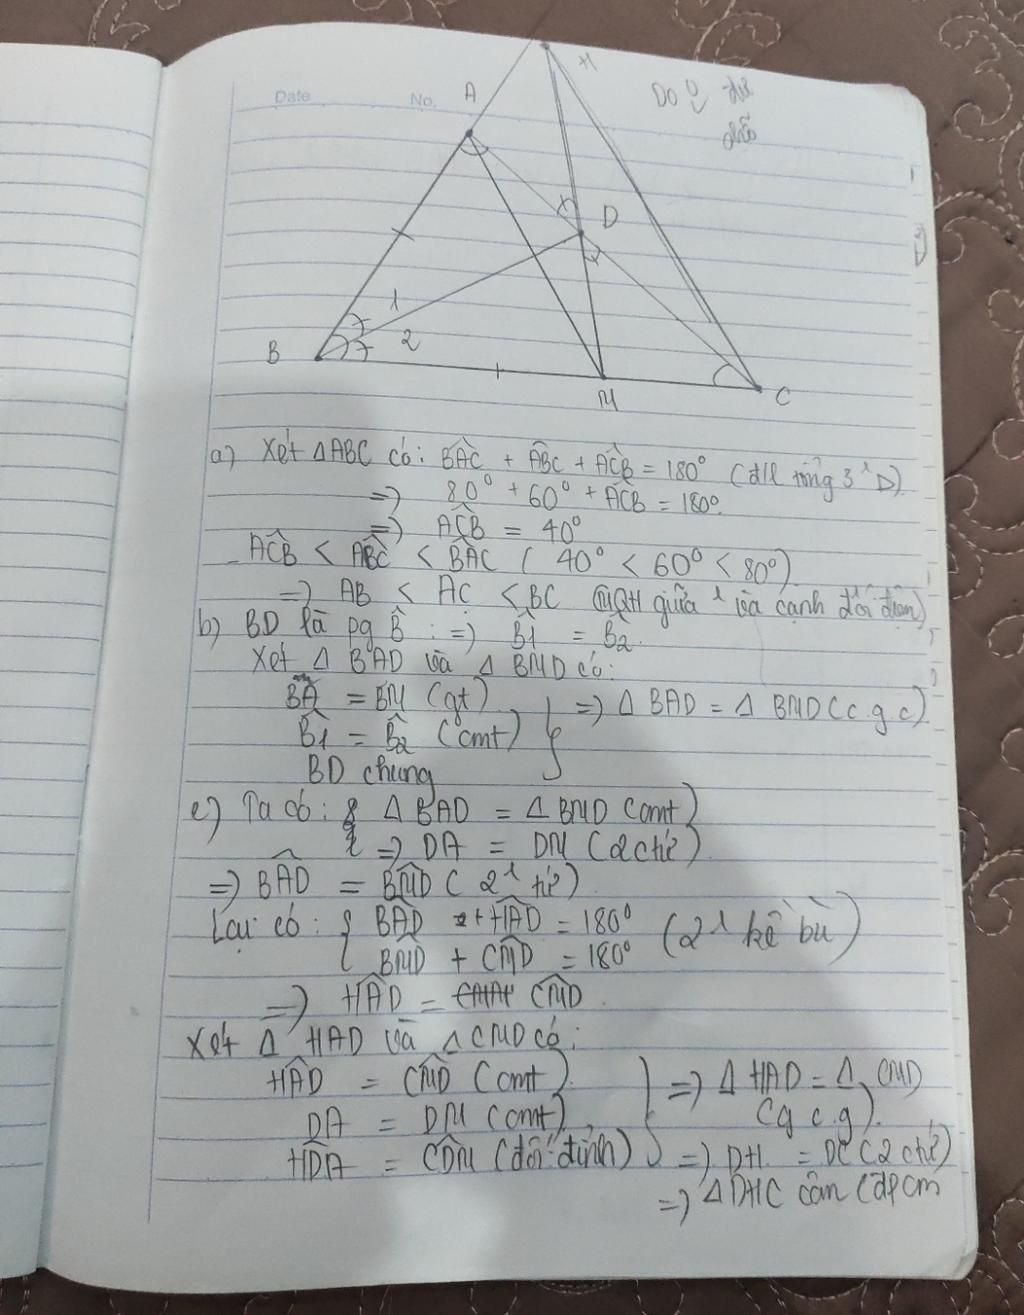 Date No.
A
H
D
1
2
B
M
C
a) Xét ΔABC có: BÂC + ABC + ACB = 180° (đ/l tổng 3 Δ)
=> 80° + 60° + ACB = 180°
=> ACB = 40°
ACB < ABC < BAC (40° < 60° < 80°)
=> AB < AC < BC (MQH giữa và cạnh đối diện)
b) BD là pg B̂ : => B̂1 = B̂2
Xét Δ BAD và Δ BMD có:
BA = BM (gt)
B̂1 = B̂2 (cmt)
BD chung
} => Δ BAD = Δ BMD (c.g.c)
c) Ta có: Δ BAD = Δ BMD (cmt)
=> DA = DM (2 ctứ)
=> BAD = BMD (2 tứ)
Lại có: { BAD + HAD = 180°
BMD + CMD = 180°
(2 kề bù)
=> HAD = CMD
Xét Δ HAD và Δ CMD có:
HAD = CMD (cmt)
DA = DM (cmt)
HDA = CDM (đối đỉnh)
} => Δ HAD = Δ CMD
(g.c.g)
=> DH = DC (2 ctứ)
=> Δ DHC cân (đpcm